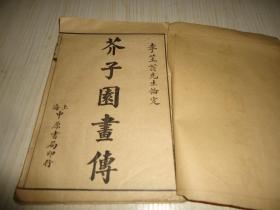 李笠翁先生論定
芥子園畫傳
上海中原書局印行